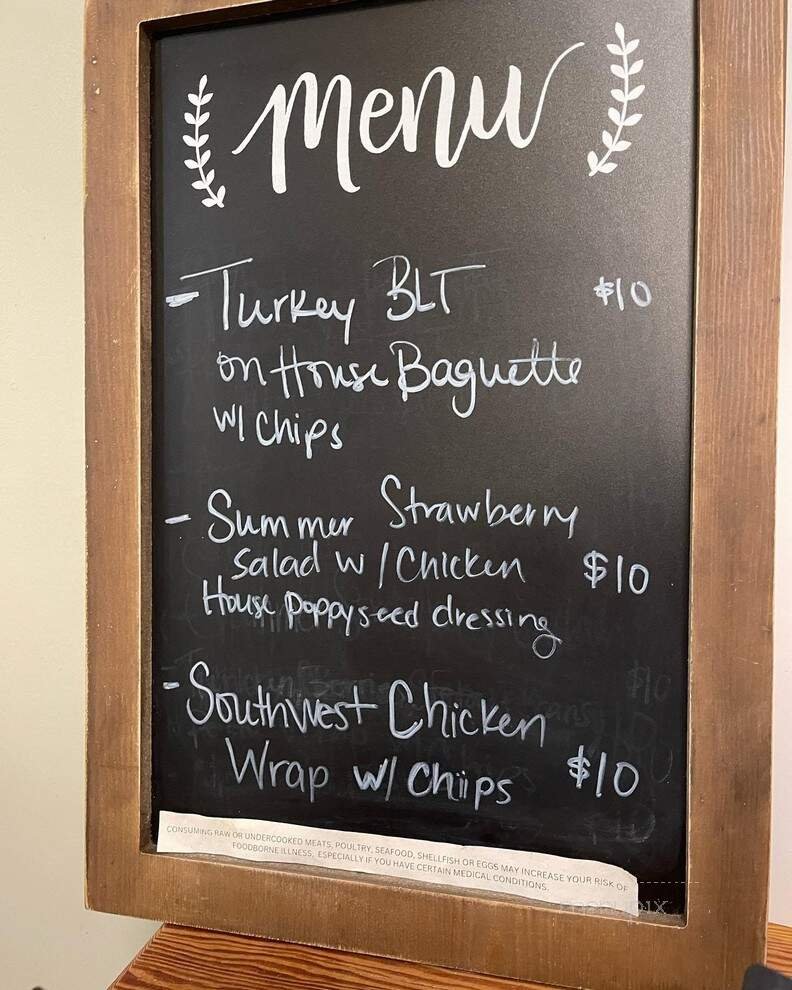 menu
- Turkey BLT $10
on House Baguette
w/ Chips
- Summer Strawberry
Salad w/Chicken $10
House poppyseed dressing
- Southwest Chicken
Wrap w/ Chiips $10
CONSUMING RAW OR UNDERCOOKED MEATS, POULTRY, SEAFOOD, SHELLFISH OR EGGS MAY INCREASE YOUR RISK OF
FOODBORNE ILLNESS, ESPECIALLY IF YOU HAVE CERTAIN MEDICAL CONDITIONS.